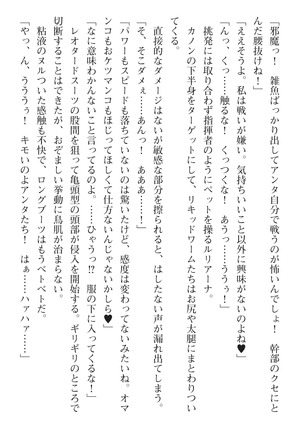 「邪魔っ！　雑魚ばっかり出してアンタ自分で戦うのが怖いんでしょ！　幹部のクセにと
んだ腰抜けね！」
「ええそうよ。私は戦いが嫌い。気持ちいいこと以外に興味がないのよね♥」
「んっ、くっ……触るな！　くっつくな！　あうっ……ううぅ！」
挑発には取り合わず指揮者のようにペットを操るルリアーナ。
カノンの下半身をターゲットにして、リキッドワームたちはお尻や太腿にまとわりつい
てくる。
直接的なダメージはないが敏感な部分を擦られると、はしたない声が漏れ出てしまう。
「そ、そこダメぇ……あんっ！　あああ……！」
「パワーもスピードも落ちていないのは驚いたけど、感度は変わってないみたいね。オマ
ンコもおケツマンコもほじってほしくて仕方ないんじゃないかしら♥」
「なに意味わかんないこと言ってるのよ。……ひゃうっ!?　服の下に入ってくるな！」
レオタードスーツの股間を狙って亀頭型の頭部が侵入を開始する。ギリギリのところで
切断することはできたが、おぞましい挙動に鳥肌が治まらない。
粘液のヌルついた感触も不快で、ロングブーツはもうベトベトだ。
「やっ、ん、うううっ！　キモいのよアンタたち！　はぁ……ハァハァ……」